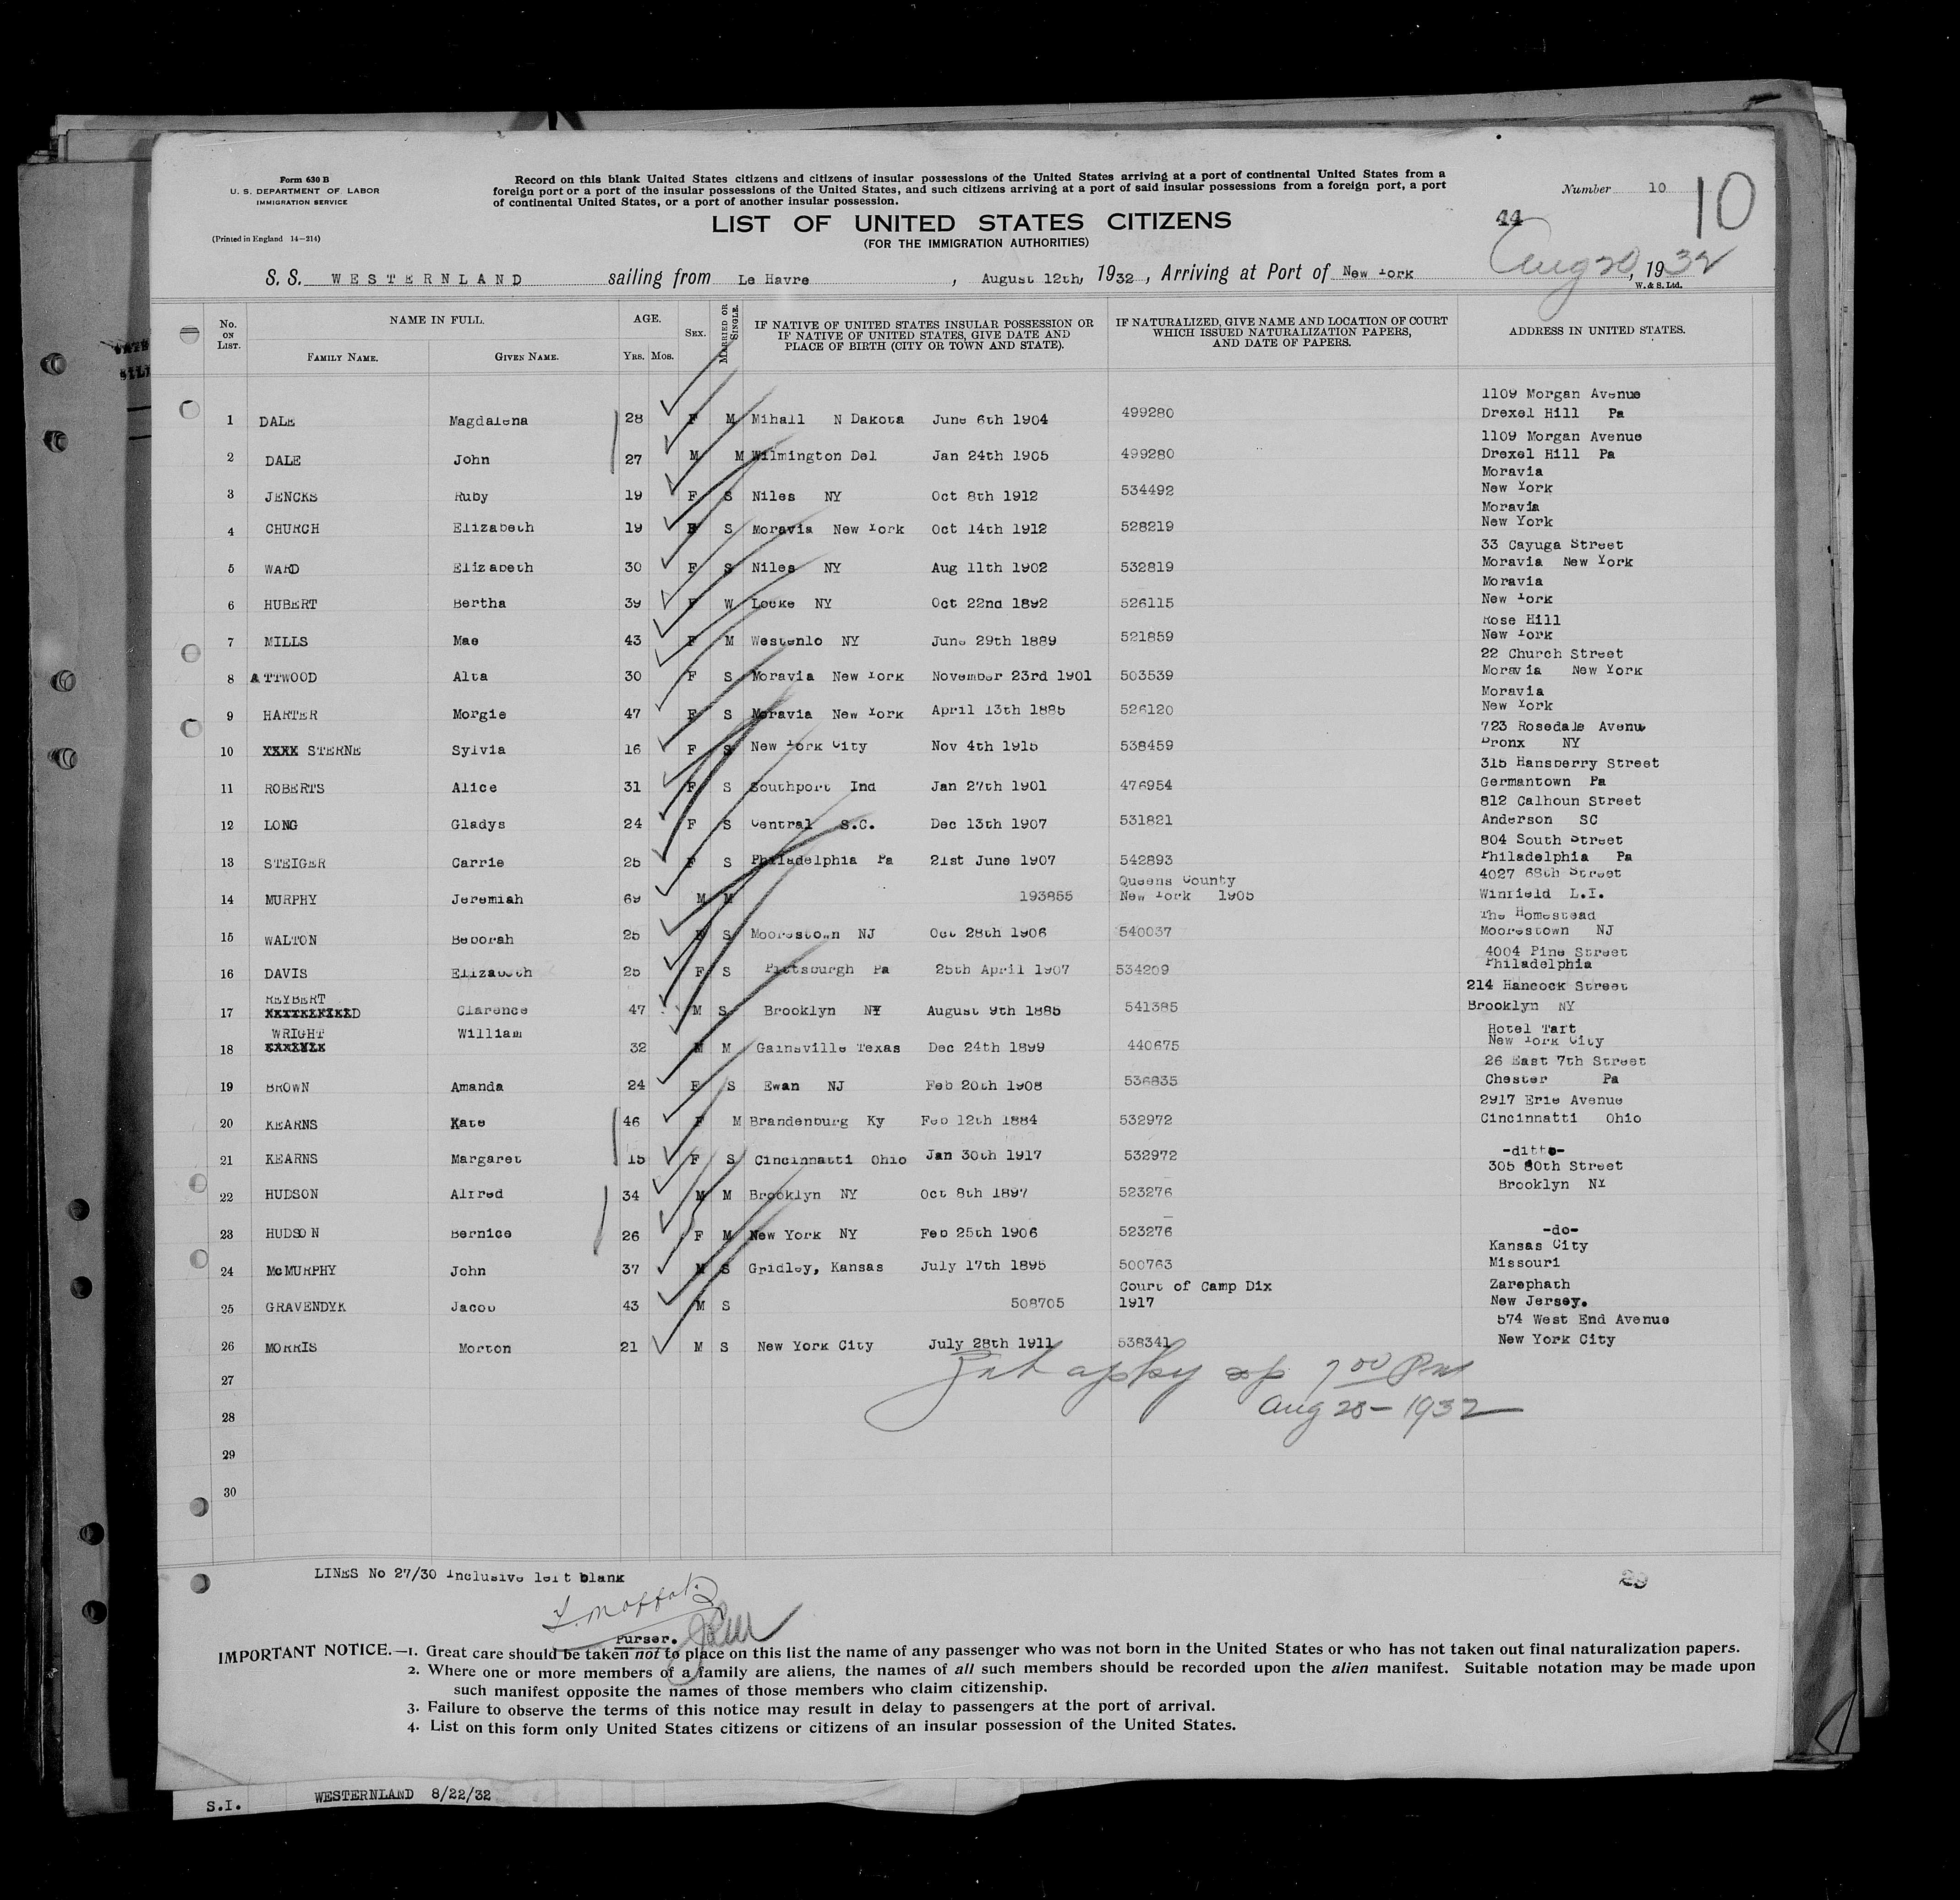 Form 630 B
U. S. DEPARTMENT OF LABOR
IMMIGRATION SERVICE
(Printed in England 14—214)
Record on this blank United States citizens and citizens of insular possessions of the United States arriving at a port of continental United States from a
foreign port or a port of the insular possessions of the United States, and such citizens arriving at a port of said insular possessions from a foreign port, a port
of continental United States, or a port of another insular possession.
Number 10
10
44
LIST OF UNITED STATES CITIZENS
(FOR THE IMMIGRATION AUTHORITIES)
S. S. WESTERNLAND sailing from Le Havre , August 12th, 1932, Arriving at Port of New York Aug 20, 1932
W. & S. Ltd.
No. ON LIST. NAME IN FULL. AGE. SEX. MARRIED OR SINGLE. IF NATIVE OF UNITED STATES INSULAR POSSESSION OR IF NATIVE OF UNITED STATES, GIVE DATE AND PLACE OF BIRTH (CITY OR TOWN AND STATE). IF NATURALIZED, GIVE NAME AND LOCATION OF COURT WHICH ISSUED NATURALIZATION PAPERS, AND DATE OF PAPERS. ADDRESS IN UNITED STATES.
FAMILY NAME. GIVEN NAME. YRS. MOS.
1109 Morgan Avenue
1 DALE Magdalena 28 F M Mihall N Dakota June 6th 1904 499280 Drexel Hill Pa
1109 Morgan Avenue
2 DALE John 27 M M Wilmington Del Jan 24th 1905 499280 Drexel Hill Pa
Moravia
3 JENCKS Ruby 19 F S Niles NY Oct 8th 1912 534492 New York
Moravia
4 CHURCH Elizabeth 19 F S Moravia New York Oct 14th 1912 528219 New York
33 Cayuga Street
5 WARD Elizabeth 30 F S Niles NY Aug 11th 1902 532819 Moravia New York
Moravia
6 HUBERT Bertha 39 F W Locke NY Oct 22nd 1892 526115 New York
Rose Hill
7 MILLS Mae 43 F M Westenlo NY June 29th 1889 521859 New York
22 Church Street
8 ATTWOOD Alta 30 F S Moravia New York November 23rd 1901 503539 Moravia New York
Moravia
9 HARTER Morgie 47 F S Moravia New York April 13th 1885 526120 New York
723 Rosedale Avenu
10 XXXX STERNE Sylvia 16 F S New York City Nov 4th 1915 538459 Bronx NY
315 Hansberry Street
11 ROBERTS Alice 31 F S Southport Ind Jan 27th 1901 476954 Germantown Pa
812 Calhoun Street
12 LONG Gladys 24 F S Central S.C. Dec 13th 1907 531821 Anderson SC
804 South Street
13 STEIGER Carrie 25 F S Philadelphia Pa 21st June 1907 542893 Philadelphia Pa
Queens County 4027 68th Street
14 MURPHY Jeremiah 69 M M 193855 New York 1905 Winfield L.I.
The Homestead
15 WALTON Deborah 25 F S Moorestown NJ Oct 28th 1906 540037 Moorestown NJ
4004 Pine Street
16 DAVIS Elizabeth 25 F S Pittsburgh Pa 25th April 1907 534209 Philadelphia
REYBERT 214 Hancock Street
17 Clarence 47 M S Brooklyn NY August 9th 1885 541385 Brooklyn NY
WRIGHT William Hotel Taft
18 32 M M Gainsville Texas Dec 24th 1899 440675 New York City
26 East 7th Street
19 BROWN Amanda 24 F S Ewan NJ Feb 20th 1908 536835 Chester Pa
2917 Erie Avenue
20 KEARNS Kate 46 F M Brandenburg Ky Feb 12th 1884 532972 Cincinnati Ohio
21 KEARNS Margaret 15 F S Cincinnatti Ohio Jan 30th 1917 532972 -ditto-
305 80th Street
22 HUDSON Alfred 34 M M Brooklyn NY Oct 8th 1897 523276 Brooklyn NY
23 HUDSON Bernice 26 F M New York NY Feb 25th 1906 523276 -do-
Kansas City
24 McMURPHY John 37 M S Gridley, Kansas July 17th 1895 500763 Missouri
Court of Camp Dix Zarephath
25 GRAVENDYK Jacob 43 M S 508705 1917 New Jersey.
574 West End Avenue
26 MORRIS Morton 21 M S New York City July 28th 1911 538341 New York City
27
7 00 PM
28 Aug 20 - 1932
29
30
LINES No 27/30 Inclusive left blank
29
Purser.
IMPORTANT NOTICE.—1. Great care should be taken not to place on this list the name of any passenger who was not born in the United States or who has not taken out final naturalization papers.
2. Where one or more members of a family are aliens, the names of all such members should be recorded upon the alien manifest. Suitable notation may be made upon
such manifest opposite the names of those members who claim citizenship.
3. Failure to observe the terms of this notice may result in delay to passengers at the port of arrival.
4. List on this form only United States citizens or citizens of an insular possession of the United States.
S.I. WESTERNLAND 8/22/32